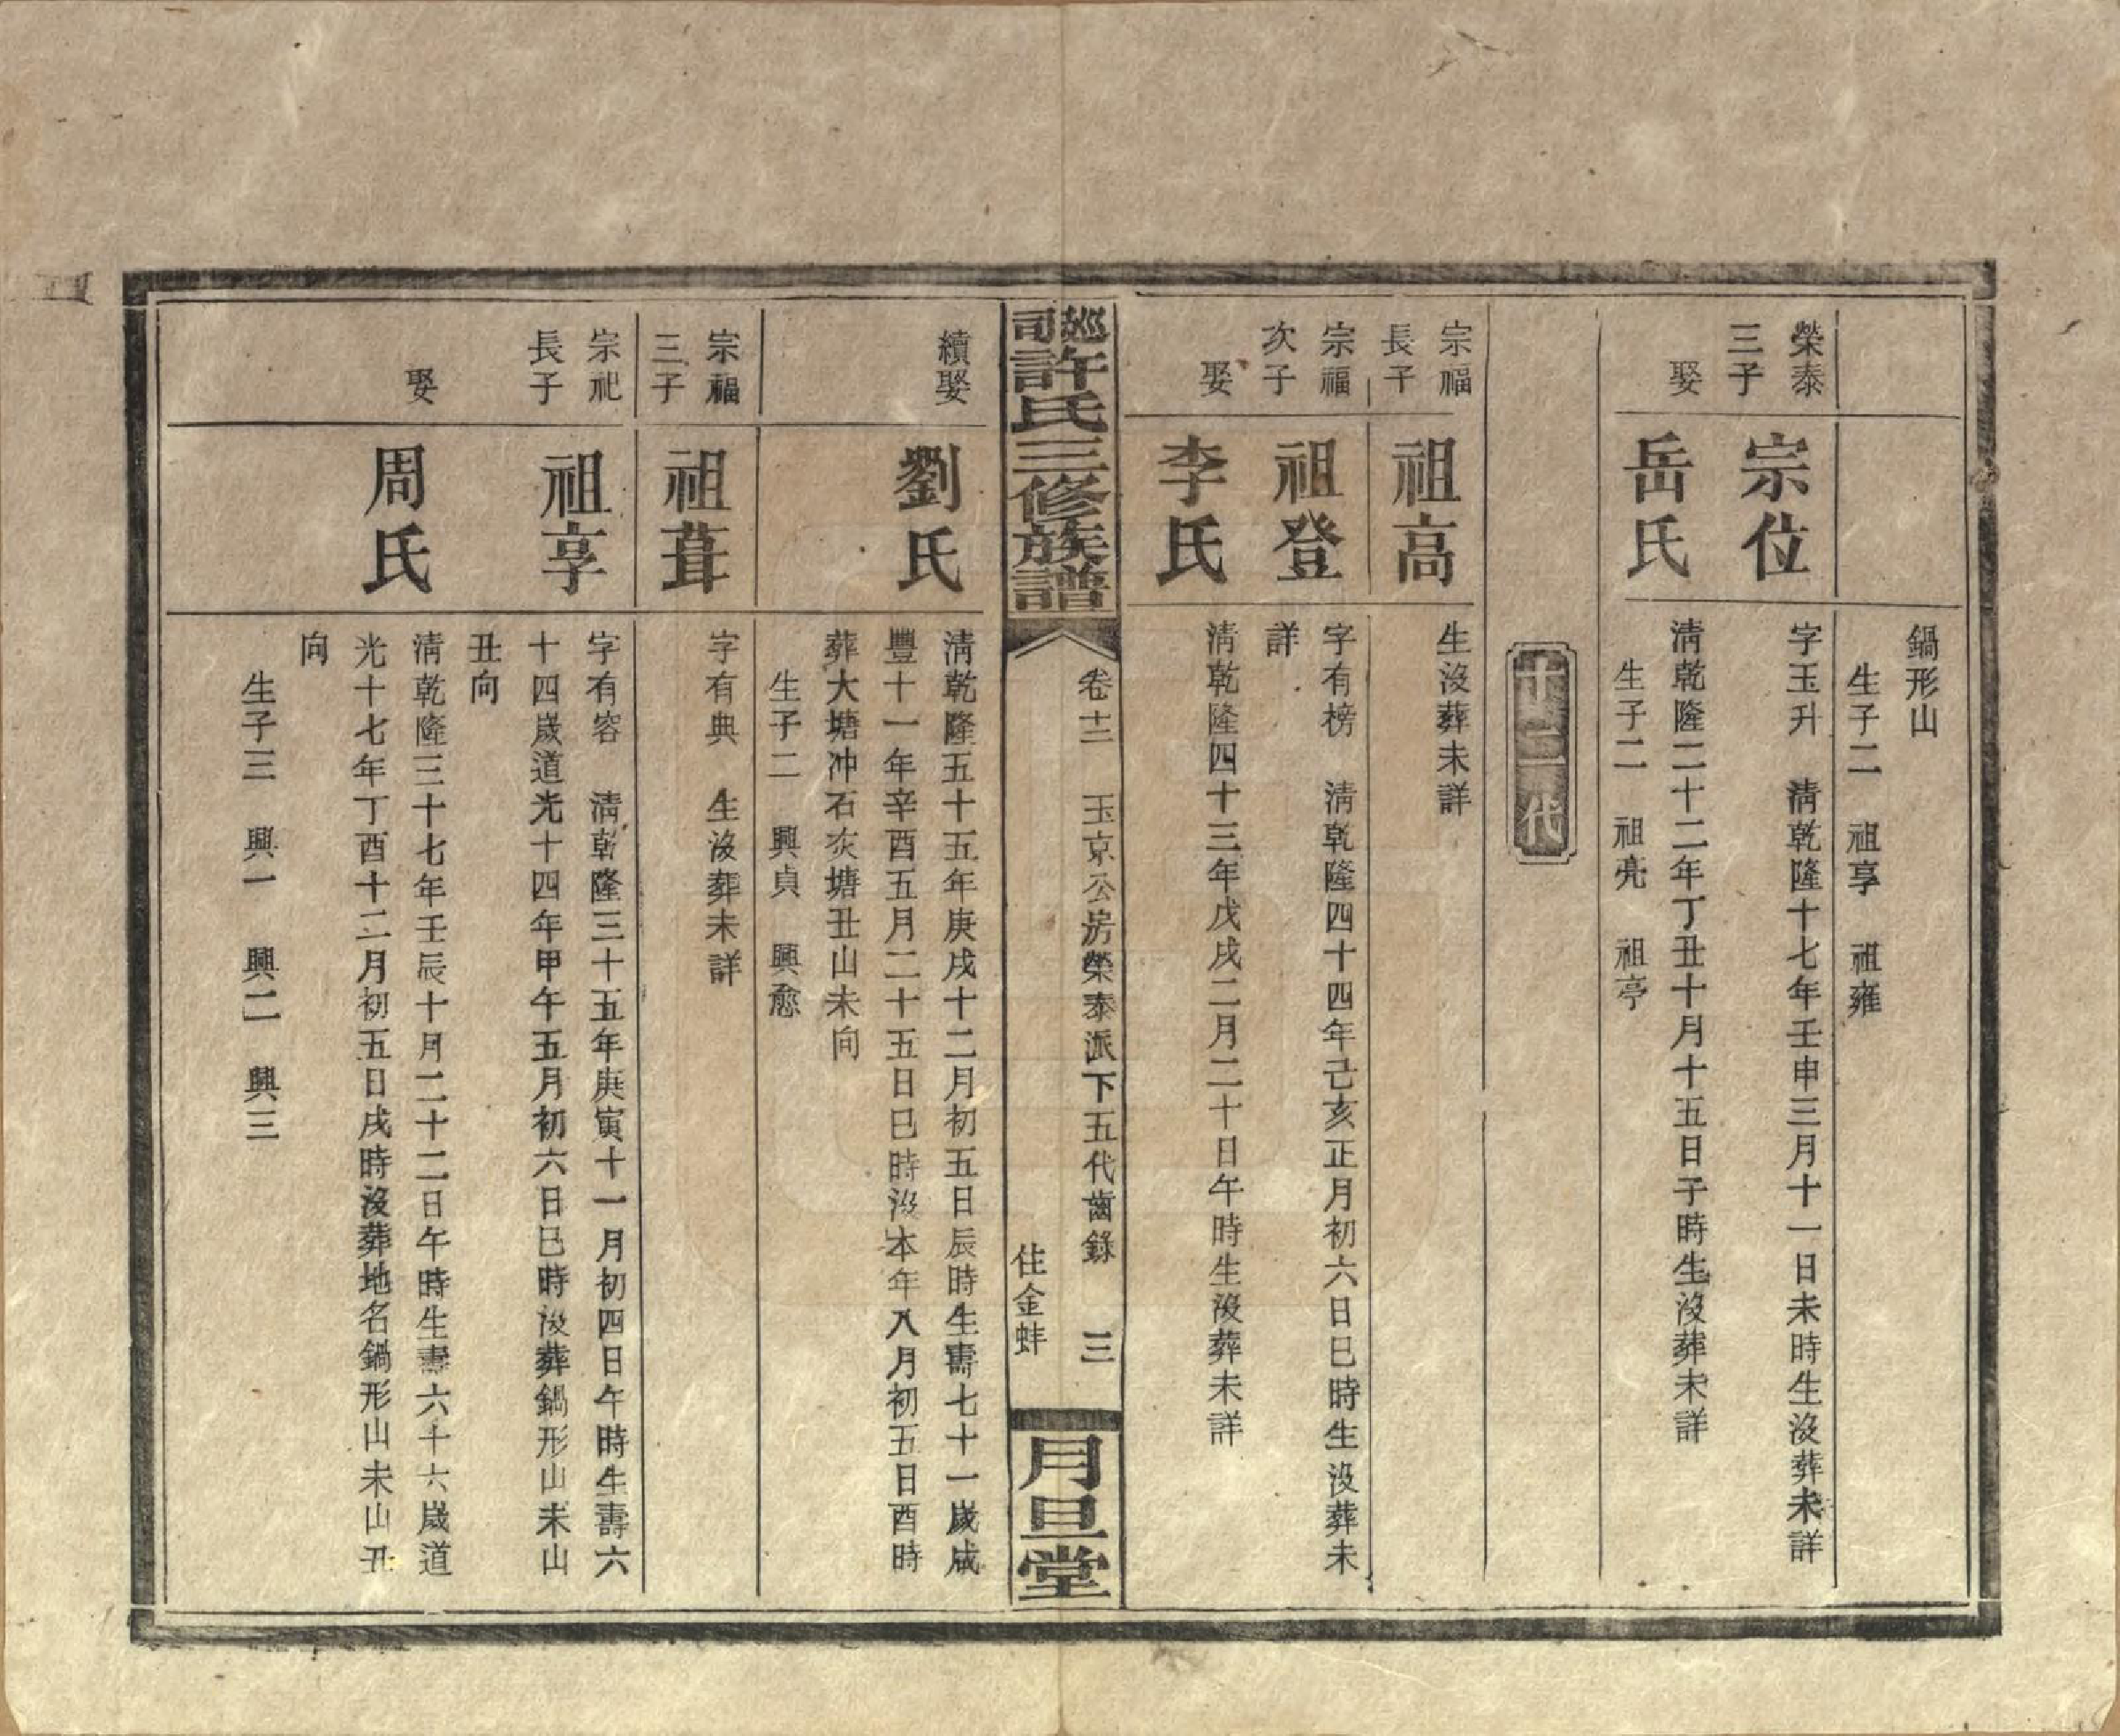 鍋形山
生子二　祖享　祖雍
榮泰
三子
宗位
字玉升　淸乾隆十七年壬申三月十一日未時生沒葬未詳
娶
岳氏
淸乾隆二十二年丁丑十月十五日子時生沒葬未詳
生子二　祖亮　祖亭
十二代
宗福
長子
祖高
生沒葬未詳
宗福
次子
祖登
字有榜　淸乾隆四十四年己亥正月初六日巳時生沒葬未
詳
娶
李氏
淸乾隆四十三年戊戌二月二十日午時生沒葬未詳
巡司許氏三修族譜
卷十二　玉京公房榮泰派下五代齒錄　三
住金蚌
月旦堂
續娶
劉氏
淸乾隆五十五年庚戌十二月初五日辰時生壽七十一歲咸
豐十一年辛酉五月二十五日巳時沒本年八月初五日酉時
葬大塘冲石灰塘丑山未向
生子二　興貞　興愈
宗福
三子
祖葺
字有典　生沒葬未詳
宗祀
長子
祖享
字有容　淸乾隆三十五年庚寅十一月初四日午時生壽六
十四歲道光十四年甲午五月初六日巳時沒葬鍋形山未山
丑向
娶
周氏
淸乾隆三十七年壬辰十月二十二日午時生壽六十六歲道
光十七年丁酉十二月初五日戌時沒葬地名鍋形山未山丑
向
生子三　興一　興二　興三